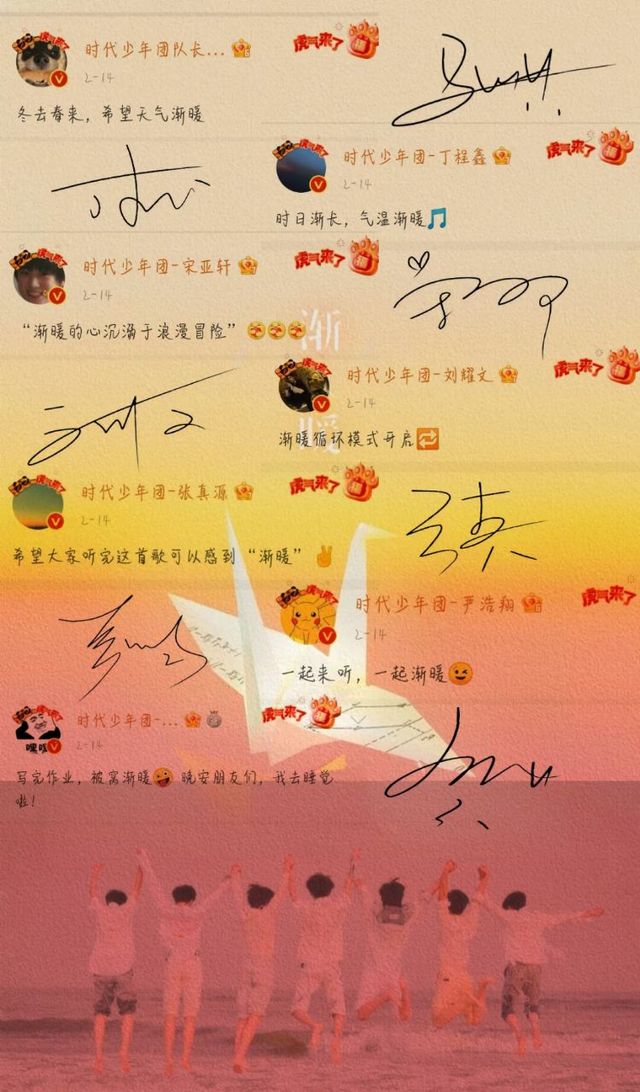 时代少年团队长...
虎气来了
福
2-14
冬去春来，希望天气渐暖
时代少年团-丁程鑫
虎气来了
福
2-14
时日渐长，气温渐暖🎵
时代少年团-宋亚轩
虎气来了
福
2-14
“渐暖的心沉溺于浪漫冒险”
渐
暖
时代少年团-刘耀文
虎气来了
福
2-14
渐暖循环模式开启🔁
时代少年团-张真源
虎气来了
福
2-14
希望大家听完这首歌可以感到“渐暖”✌
时代少年团-严浩翔
虎气来了
2-14
一起来听，一起渐暖😉
时代少年团-...
虎气来了
福
2-14
写完作业，被窝渐暖🤪 晚安朋友们，我去睡觉
啦！